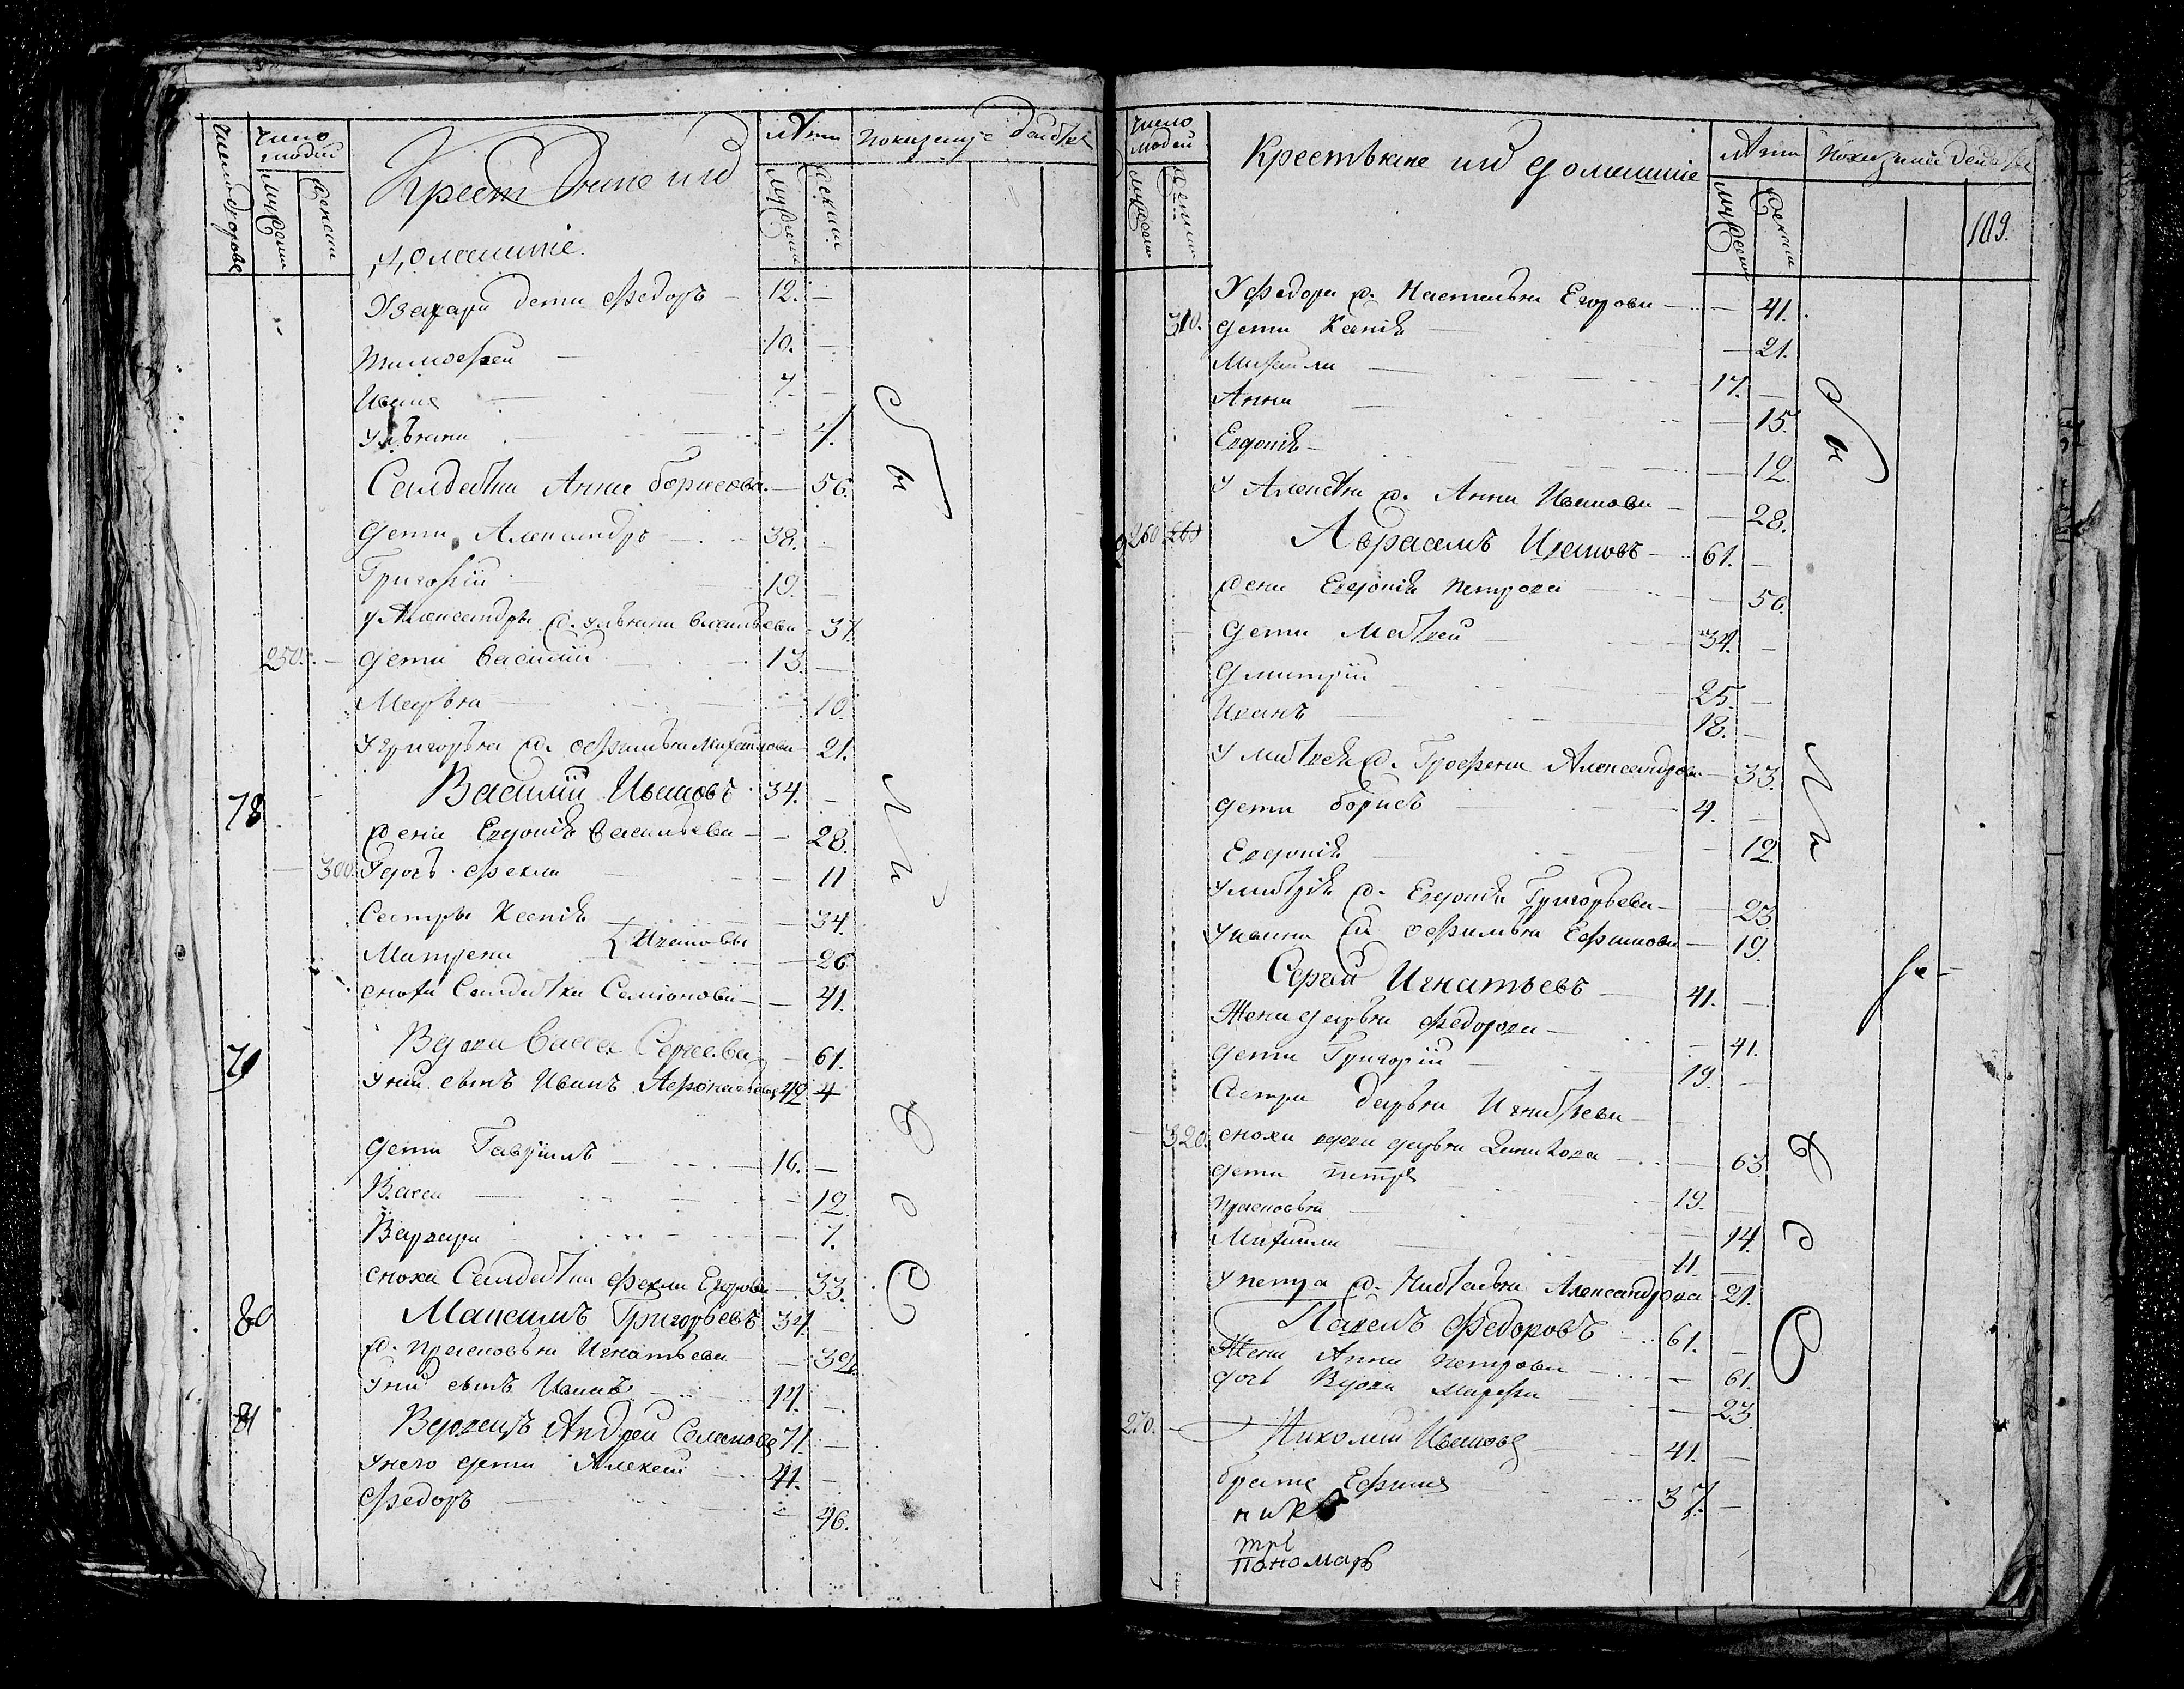 число дворовъ
число людей
мужеска
женска
Крестьяне и их
домашніе.
лѣта
мужеска
женска
показаніе действ
У Захара дети Федоръ — 12. —
Тимофей — 10. —
Иванъ — 7. —
Ульяна — — 4.
Салдатка Анна Борисова. — 56.
Дети Александръ — 38. —
Григорій — 19. —
У Александра ж. Ульяна Васильева — 37
250. Дети Василій — 13. —
Марья — — 10.
У Григорья ж. Офимья Михайлова — 21.
78 Василій Ивановъ 34. —
жена Евдокія Васильева — — 28.
300. У дочь Фекла — — 11
Сестры Ксенія — 34.
Матрена } Ивановы — 26.
сноха Салдатка Семіонова — — 41.
79 Вдова Васса Сергеева — 61.
У ней сынъ Иванъ 42 4
Дети Гавріилъ — 16. —
Васса — — 12.
Варвара — — 7.
сноха Салдатка Фекла Егорова — 33.
80 Максимъ Григорьевъ 34. —
ж. Прасковья Игнатьева —
У ниխ сынъ Иванъ 14. —
81 Вдовецъ Андрей Семионовъ 71. —
У него дети Алексей — 41. —
Федоръ — 46.
Были
все
число людей
мужеска
женска
Крестьяне и их домашніе
лѣта
мужеска
женска
показаніе действ
109.
У Федора ж. Наталья Егорова — — 41.
310. Дети Ксенія — — 21.
Михайла — 17. —
Анна — — 15.
Евдокія — — 12.
У Алексѣя ж. Анна Иванова — — 28.
260 Аврамъ Ивановъ — 61. —
жена Евдокія Петрова — — 56.
Дети Матвей — 34. —
Дмитрій — 25. —
Иванъ — 18. —
У Матвея ж. Графена Александрова — 33.
Дети Борисъ — 4. —
Евдокія — — 12.
У Митрія ж. Евдокія Григорьева — — 23
У Ивана ж. Офимья Ефимова — 19.
Сергей Игнатьевъ — 41. —
Жена Дарья Федорова — — 41.
Дети Григорій — 19. —
Сестра Дарья Игнатьева — —
320. сноха вдова Дарья — — 63.
Дети Петръ — 19. —
Прасковья — — 14.
Михайла — 11. —
У Петра ж. Наталья Александрова 21.
Павелъ Федоровъ — 61. —
Жена Анна Петрова — — 61.
Дочь Вдова Марфа — — 23.
270. — Николай Ивановъ — 41. —
Братъ Ефимъ — 37. —
Были
все
пономарь